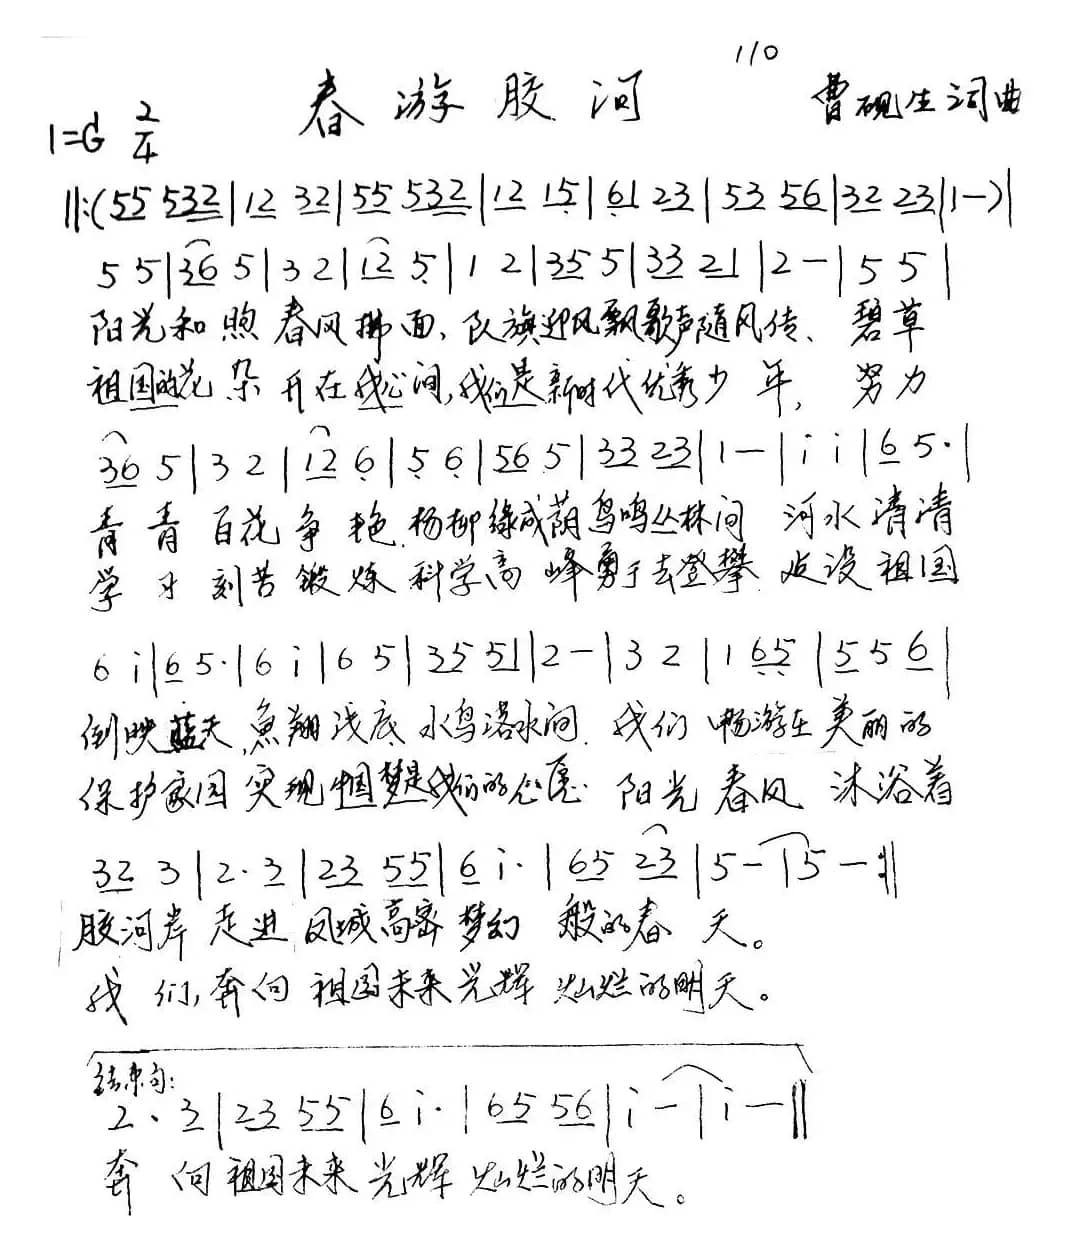 110
春游胶河
曹砚生词曲
1=G 2/4
‖:(55 532|12 32|55 532|12 15|61 23|53 56|32 23|1-)|
5 5|36 5|3 2|12 5|1 2|35 5|33 21|2-|5 5|
阳光和煦春风拂面、队旗迎风飘歌声随风传、碧草
祖国的花朵开在我心间,我们是新时代优秀少年,努力
36 5|3 2|12 6|5 6|56 5|33 23|1-|i i|6 5·|
青青百花争艳.杨柳绿成荫鸟鸣丛林间 河水清清
学习刻苦锻炼科学高峰勇于去登攀 建设祖国
6 i|6 5·|6 i|6 5|35 51|2-|3 2|1 65|5 5 6|
倒映蓝天,鱼翔浅底水鸟落水间.我们畅游在美丽的
保护家园实现中国梦是我们的心愿.阳光春风沐浴着
32 3|2·3|23 55|6 i·|65 23|5-|5-:‖
胶河岸走进凤城高密梦幻般的春天。
我们,奔向祖国未来光辉灿烂的明天。
结束句:
2·3|23 55|6 i·|65 56|i-|i-‖
奔向祖国未来光辉灿烂的明天。